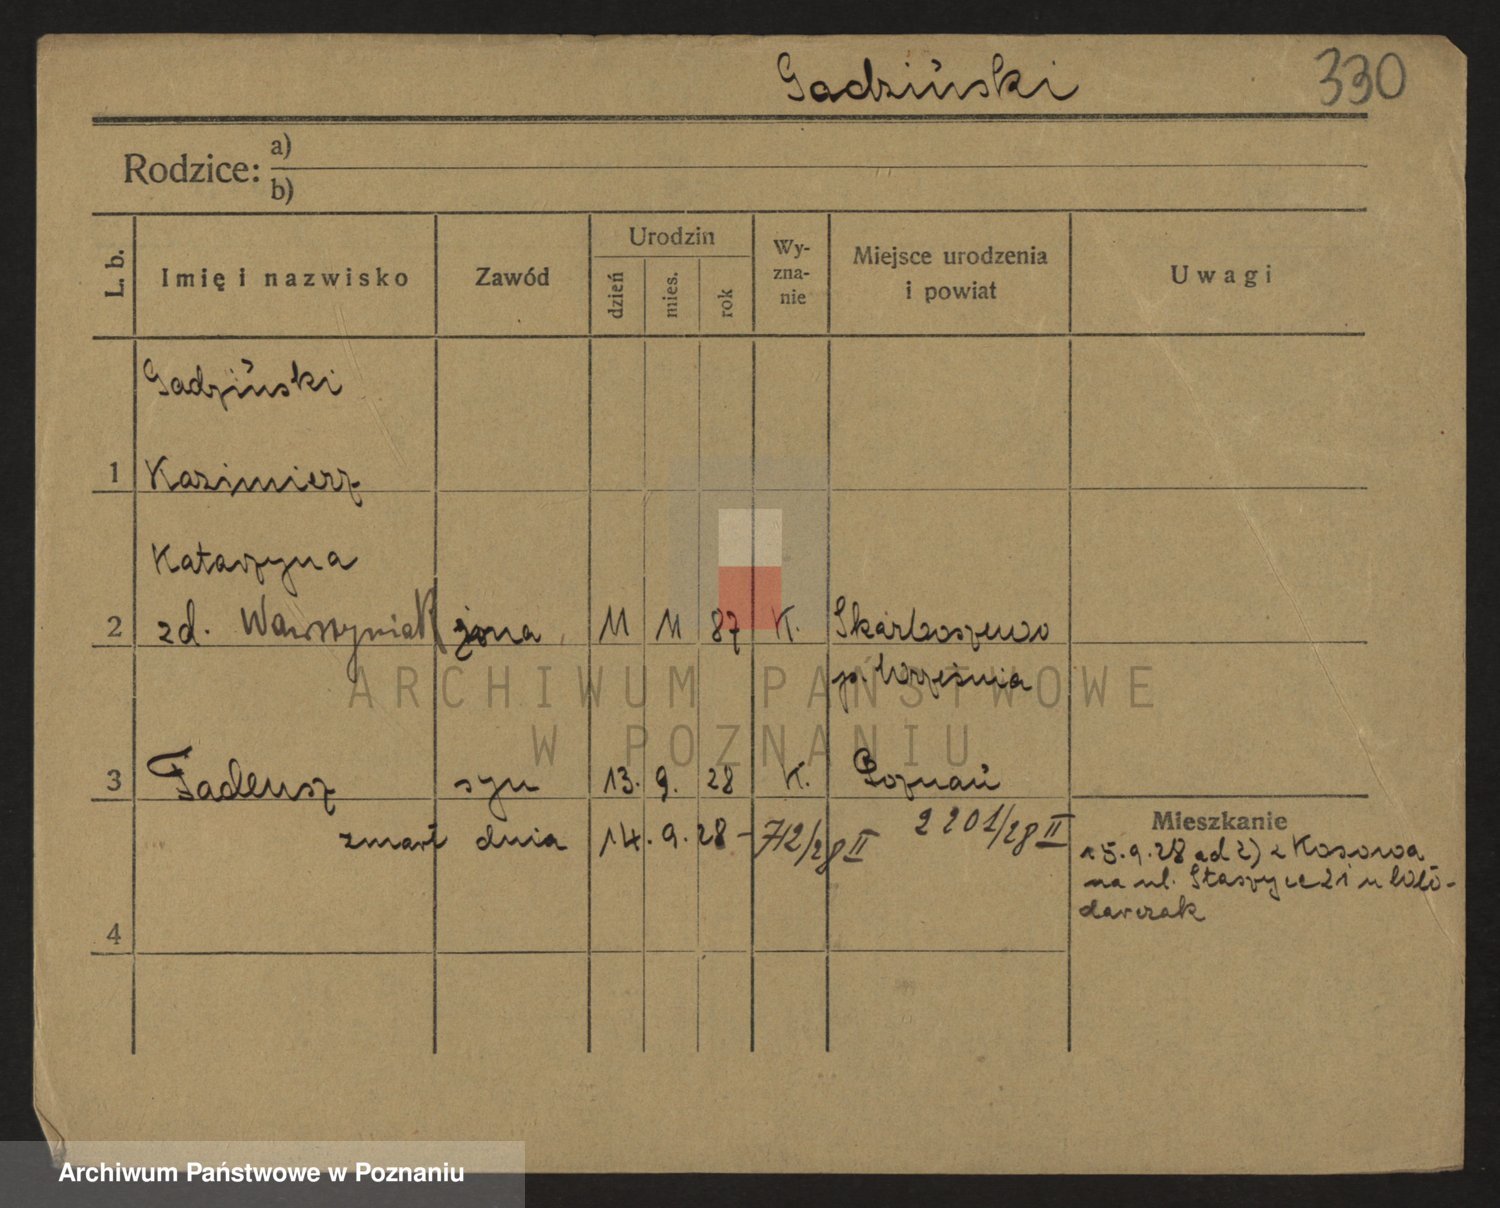 Gadziński 330
Rodzice: a)
b)
L. b. Imię i nazwisko Zawód Urodzin dzień mies. rok Wy-zna-nie Miejsce urodzenia i powiat Uwagi
Gadziński
1 Kazimierz
Katarzyna
2 zd. Wawrzyniak żona 11 11 87 K. Skarboszewo
p. Września
ARCHIWUM PAŃSTWOWE
W POZNANIU
3 Tadeusz syn 13. 9. 28 K. Poznań
zmarł dnia 14. 9. 28 - 712/28 II 2201/28 II
Mieszkanie
15.9.28 ad 2) z Kosowa
na ul. Staszyca 21 u Wło-
darczak
4
Archiwum Państwowe w Poznaniu